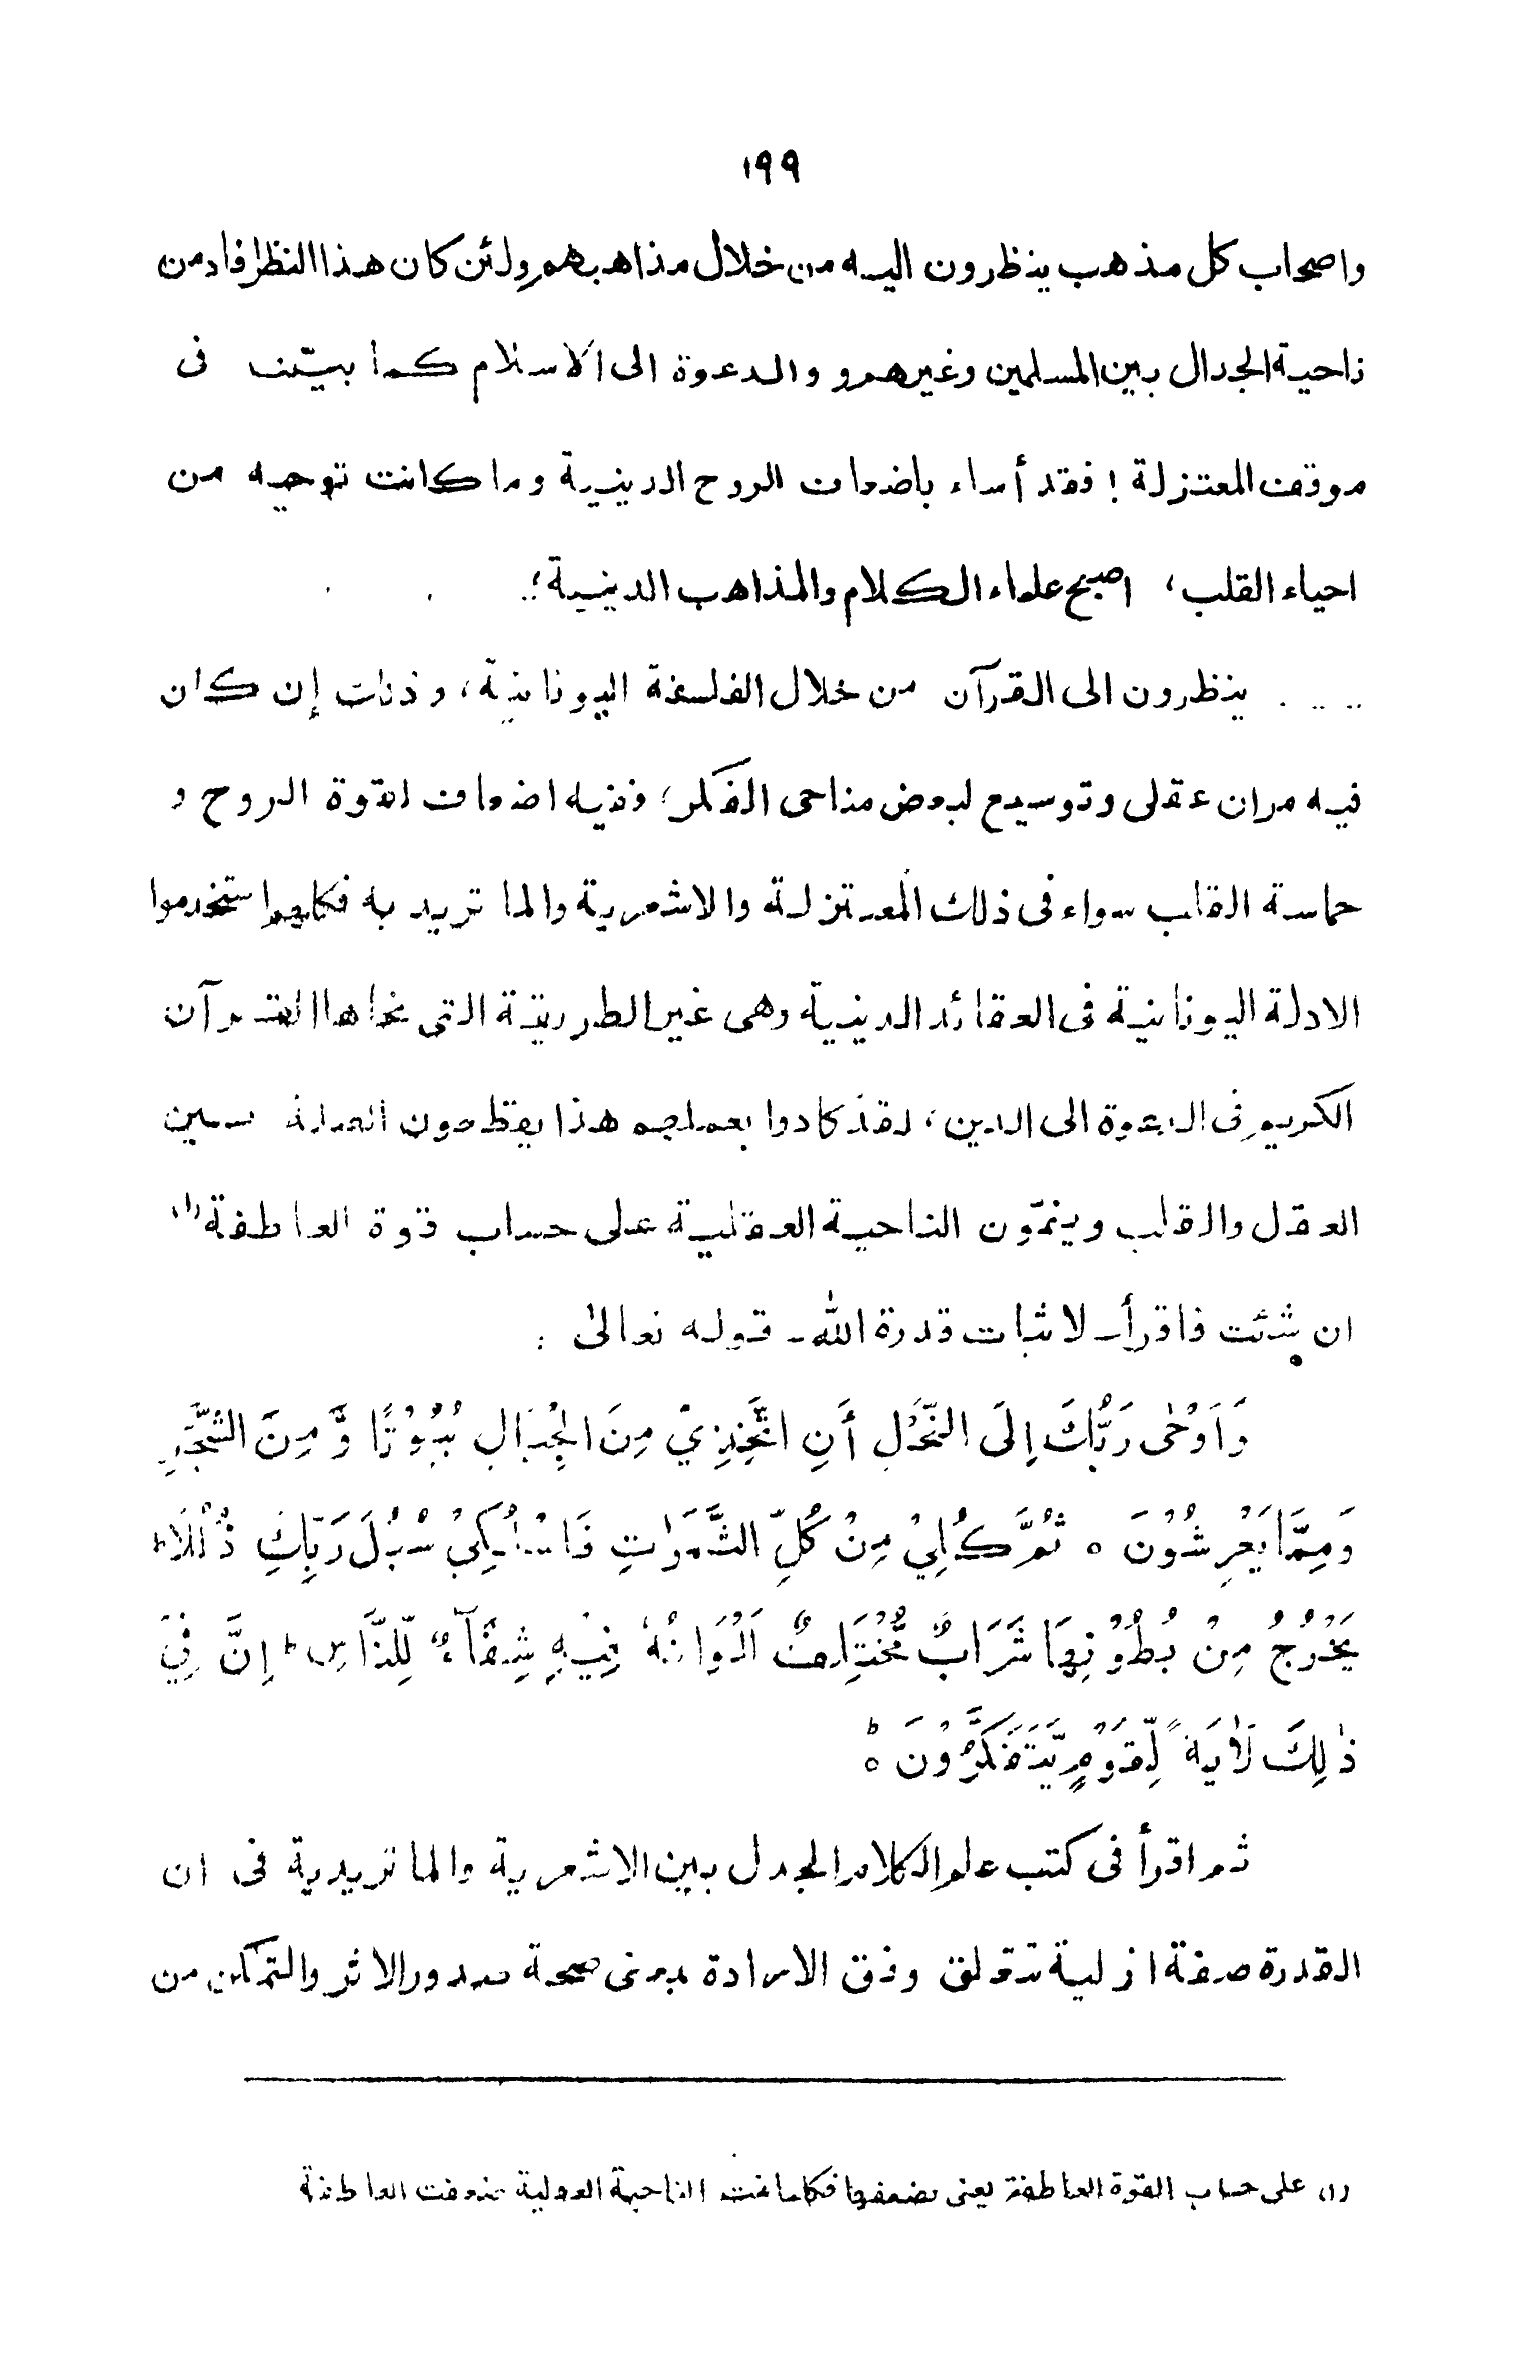 ١٩٩
واصحاب كل مذهب ينظرون اليه من خلال مذاهبهم ولئن كان هذا النظر افاد من
ناحية الجدال بين المسلمين وغيرهم و والدعوة الى الاسلام كما بيّنت فى
موقف المعتزلة ! فقد أساء باضعاف الروح الدينية وما كانت توحيه من
احياء القلب ، اصبح علماء الكلام والمذاهب الدينية ؛
ينظرون الى القرآن من خلال الفلسفة اليونانية ، وذلك إن كان
فيه مران عقلى وتوسيع لبعض مناحى الفكر ؛ ففيه اضعاف لقوة الروح و
حماسة القلب سواء فى ذلك المعتزلة والاشعرية والما تريديه فكلهم استخدموا
الادلة اليونانية فى العقائد الدينية وهى غير الطريقة التى نحاها القرآن
الكريم فى الدعوة الى الدين ، لقد كادوا بعملهم هذا يقطعون الصلة بين
العقل والقلب وينمّون الناحية العقلية على حساب قوة العاطفة (١)
ان شئت فاقرأ ـ لاثبات قدرة الله ـ قوله تعالىٰ :
وَاَوْحٰى رَبُّكَ اِلَى النَّحْلِ أَنِ اتَّخِذِيْ مِنَ الْجِبَالِ بُيُوْتًا وَّ مِنَ الشَّجَرِ
وَمِمَّا يَعْرِشُوْنَ ه ثُمَّ كُلِيْ مِنْ كُلِّ الثَّمَرٰتِ فَاسْلُكِيْ سُبُلَ رَبِّكِ ذُلُلًا ط
يَخْرُجُ مِنْ بُطُوْنِهَا شَرَابٌ مُّخْتَلِفٌ اَلْوَانُهٗ فِيْهِ شِفَآءٌ لِّلنَّاسِ ط اِنَّ فِيْ
ذٰلِكَ لَاٰيَةً لِّقَوْمٍ يَّتَفَكَّرُوْنَ ه ط
ثم اقرأ فى كتب علم الكلام الجدل بين الاشعرية والما تريدية فى ان
القدرة صفة ازلية تتعلق وفق الارادة بمعنى صحة صدور الاثر والتمكن من
(١) على حساب القوة العاطفة يعنى بضعفها فكلما نمت الناحية العقلية ضعفت العاطفة